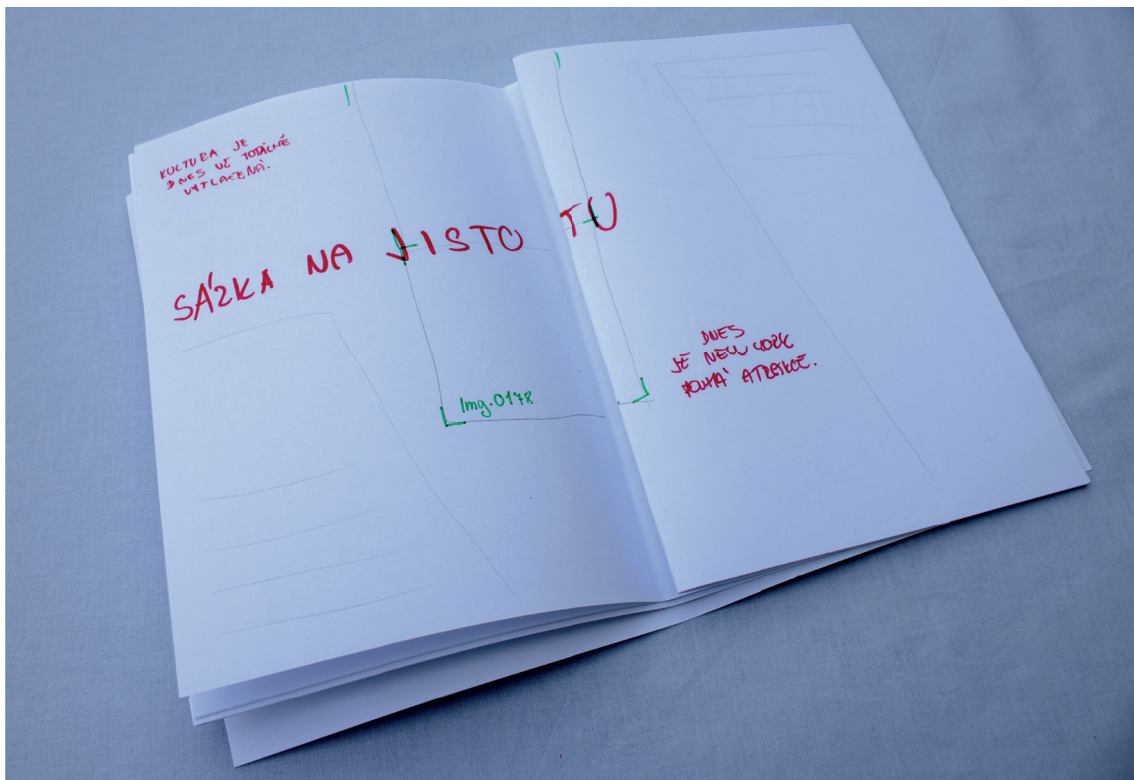 KULTURA JE
DNES UŽ TOTÁLNĚ
VYTLAČENÁ.
SÁZKA NA JISTOTU
Img.0178
DNES
JE NEW YORK
POUHÁ ATRAKCE.